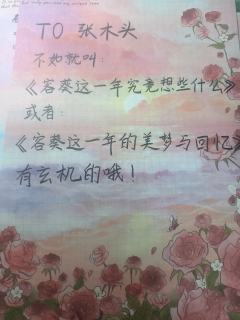 TO 张木头
不如就叫：
《容葵这一年究竟想些什么》
或者：
《容葵这一年的美梦与回忆》
有玄机的哦！